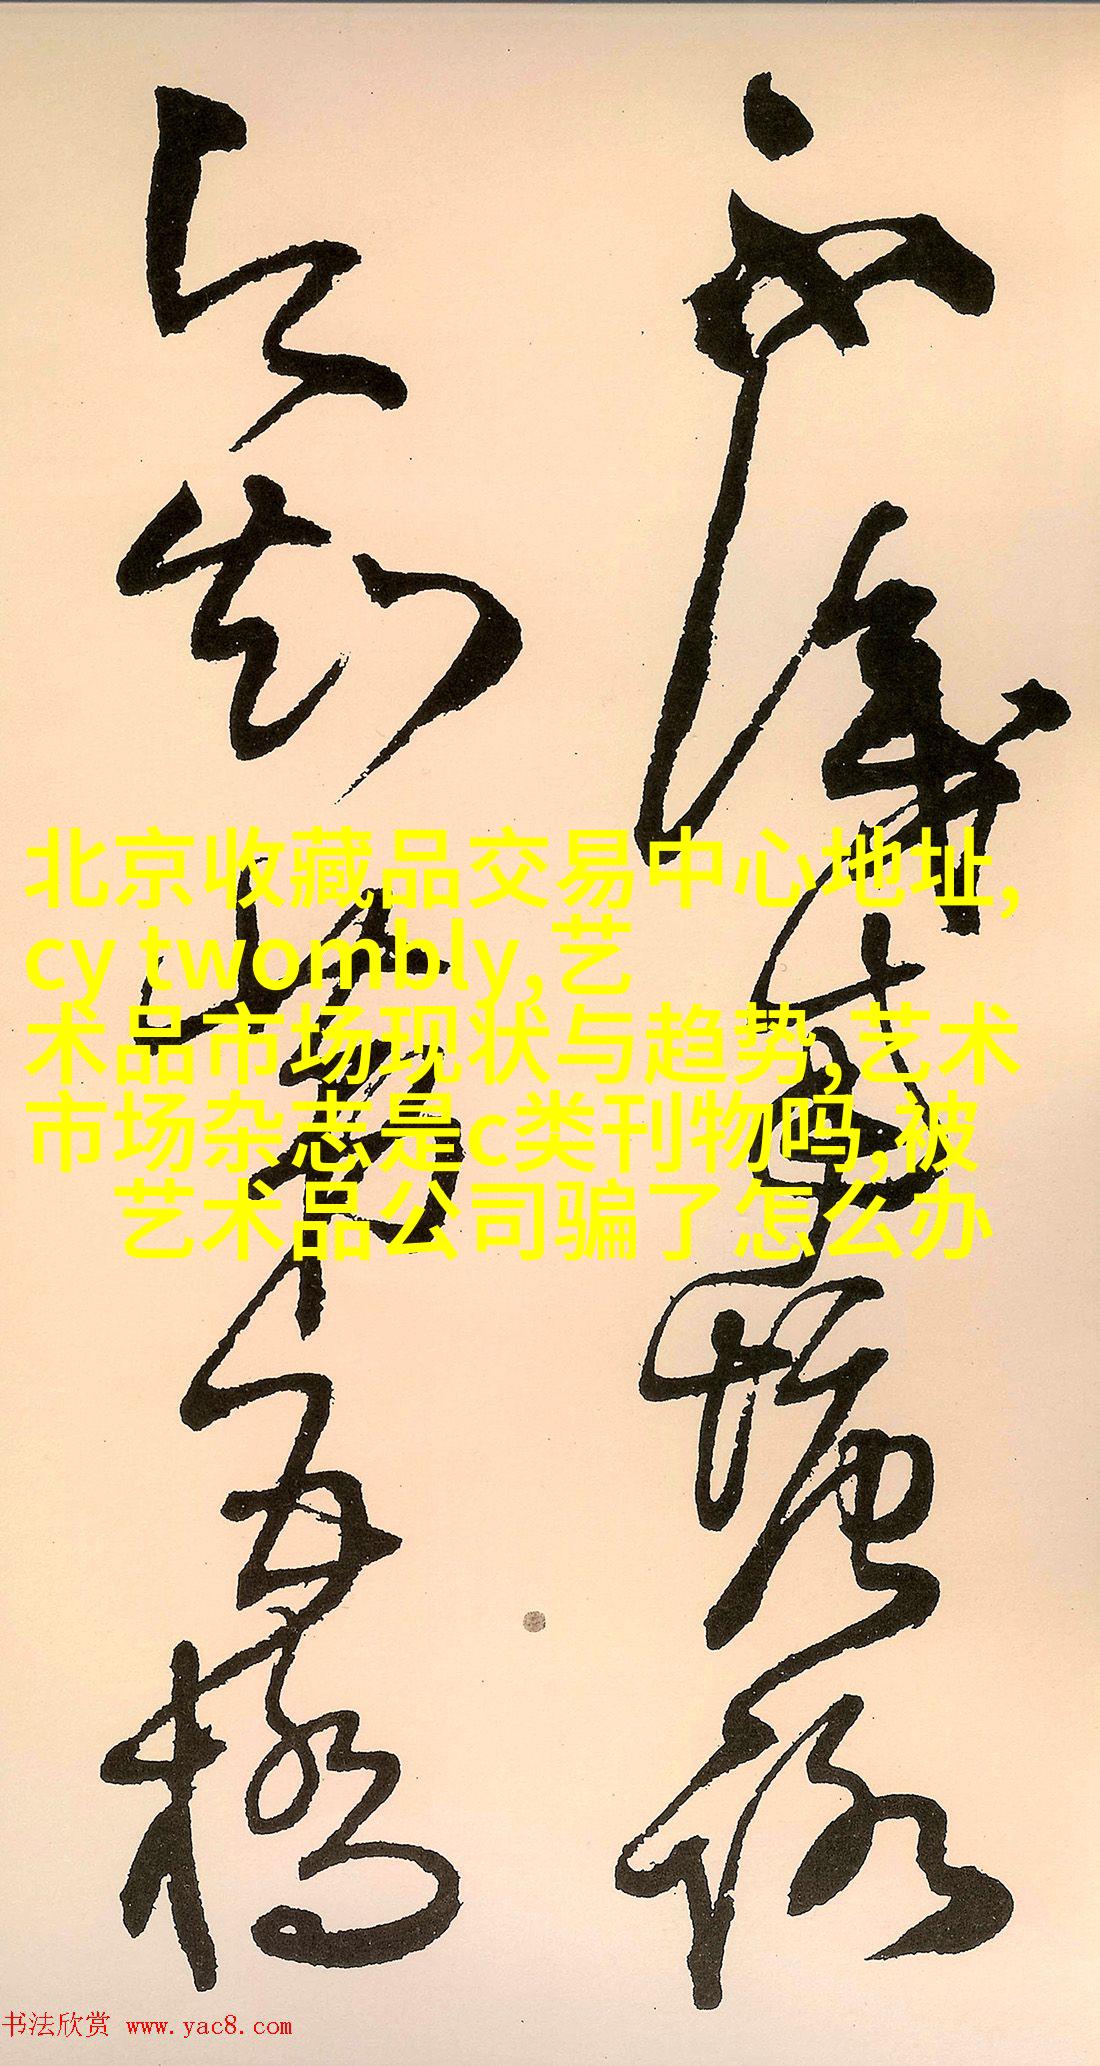 不識南塘路
今知第五橋
北京收藏品交易中心地址,
cy twombly,艺
术品市场现状与趋势,艺术
市场杂志是c类刊物吗,被
艺术品公司骗了怎么办
书法欣赏 www.yac8.com